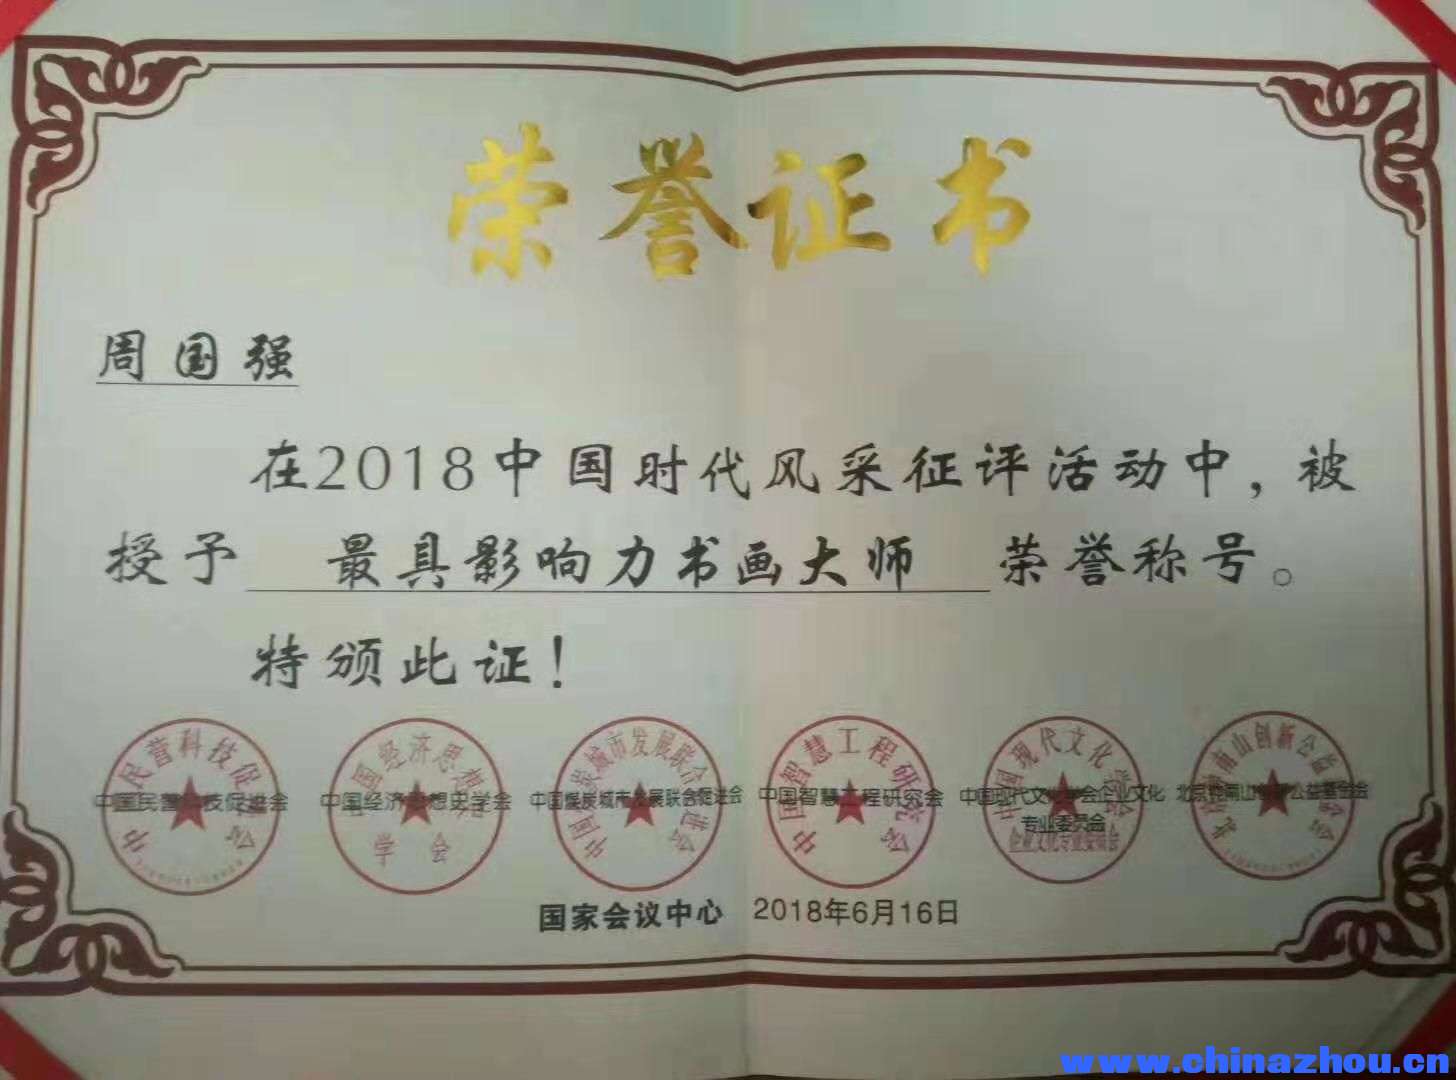 荣誉证书
周国强
在2018中国时代风采征评活动中，被
授予 最具影响力书画大师 荣誉称号。
特颁此证！
中国民营科技促进会 中国经济思想史学会 中国煤炭城市发展联合促进会 中国智慧工程研究会 中国现代文化学会企业文化 
专业委员会
国家会议中心 2018年6月16日
www.chinazhou.cn